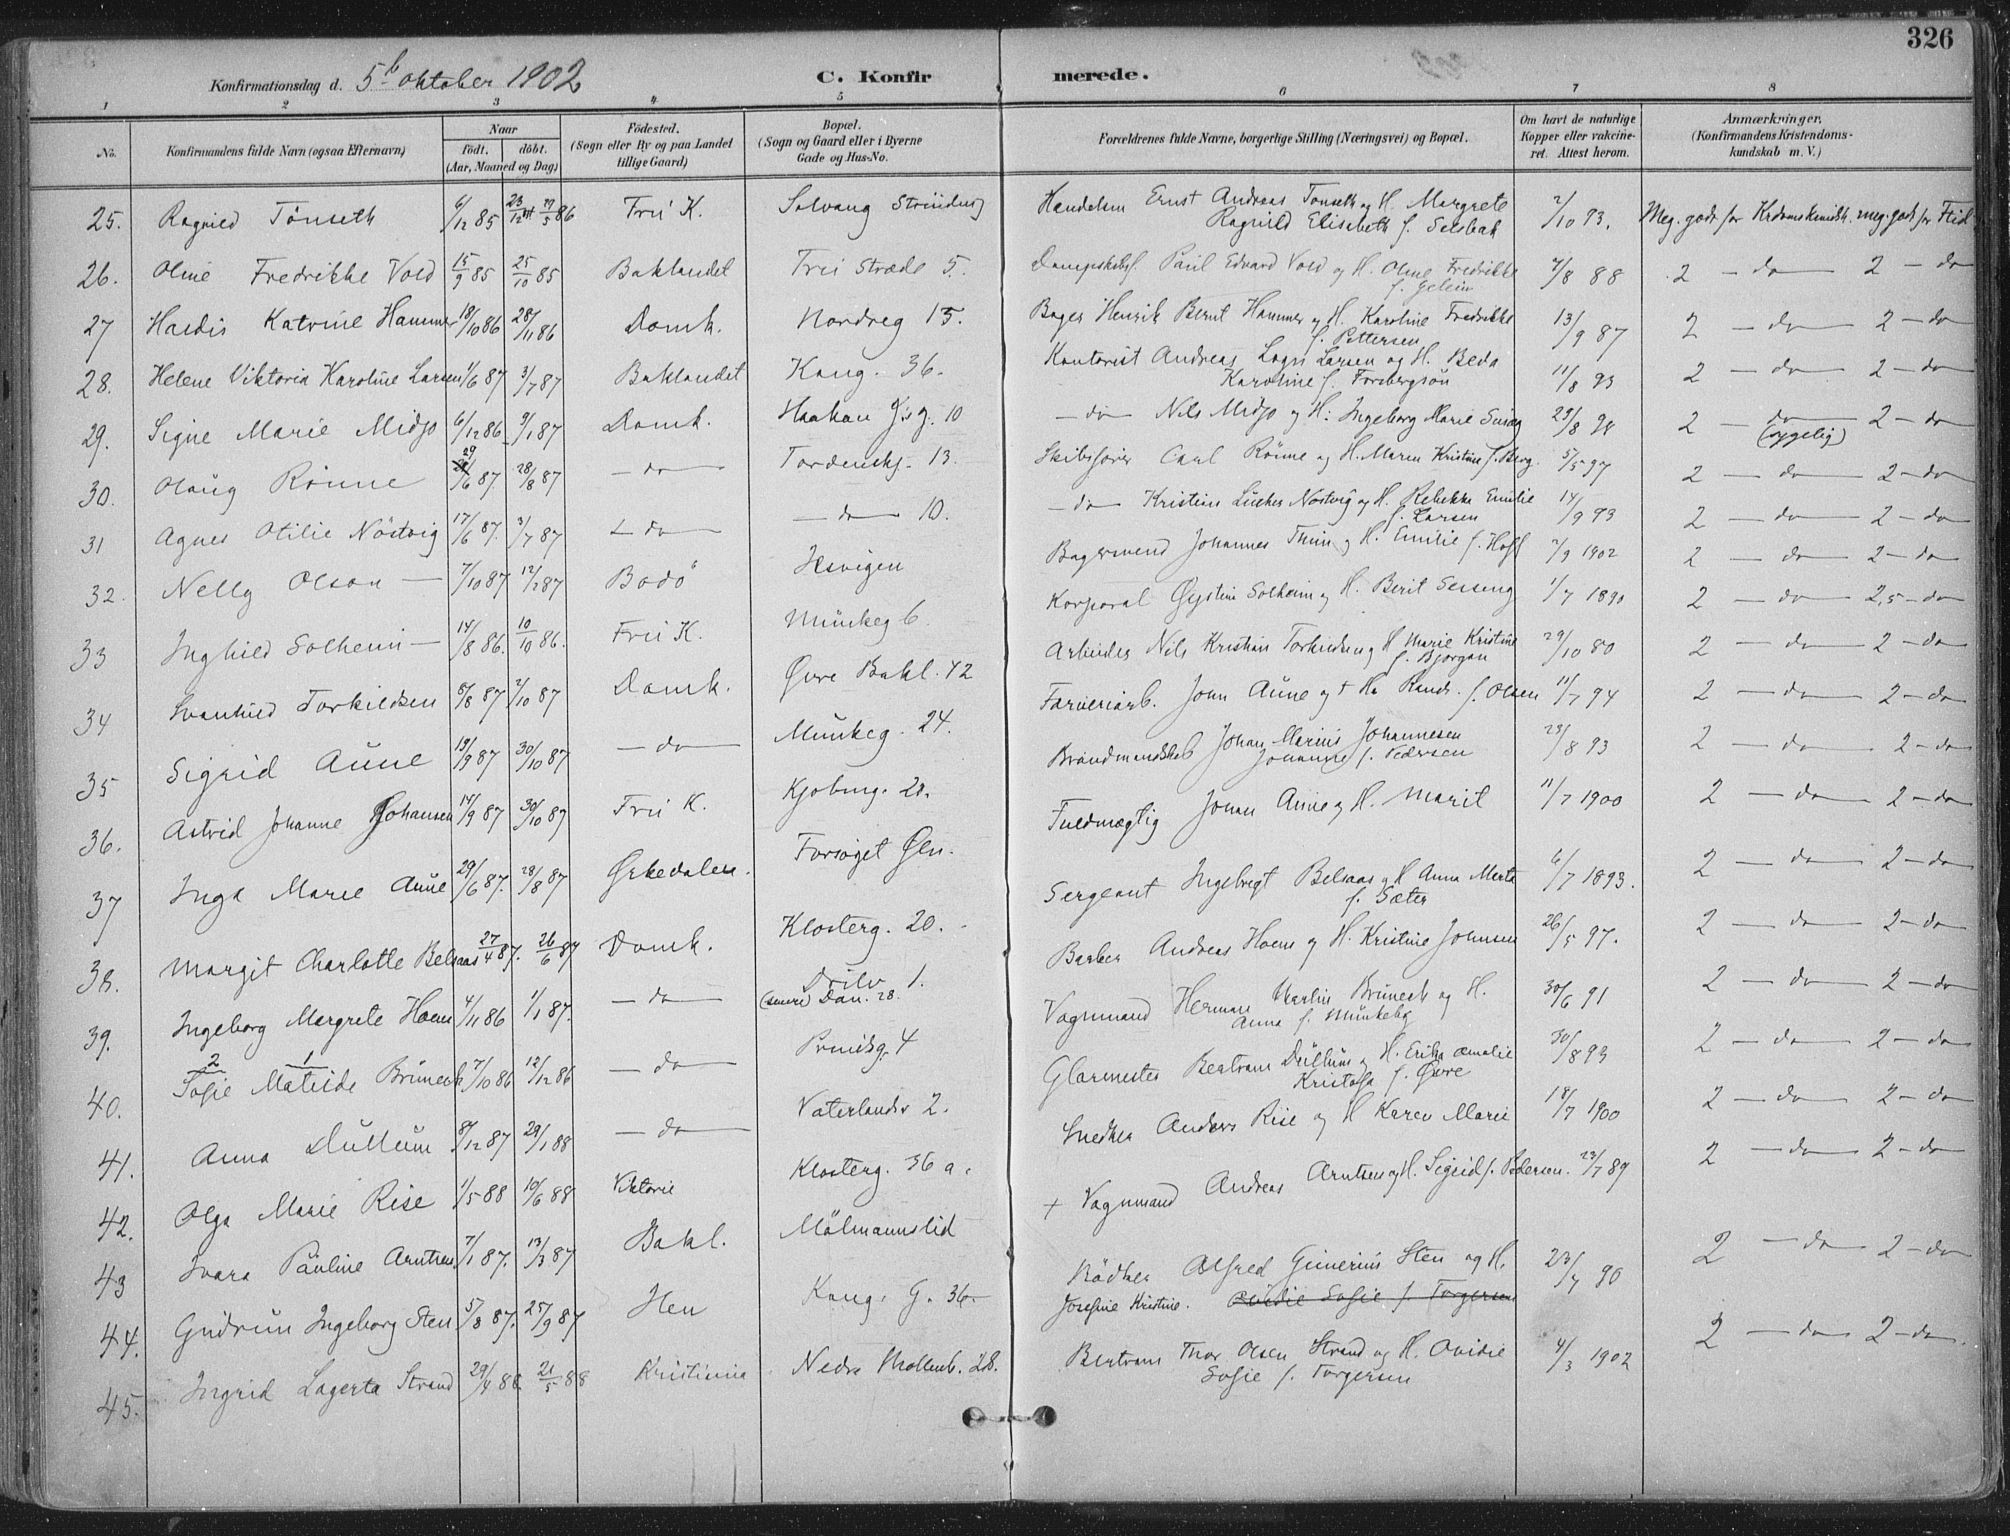 326
Konfirmationsdag d. 5 Oktober 1902 C. Konfirmerede.
1 2 3 4 5 6 7 8
No. Konfirmandens fulde Navn (ogsaa Efternavn) Naar født. døbt. (Aar, Maaned og Dag) Fødested. (Sogn eller By og paa Landet tillige Gaard) Bopæl. (Sogn og Gaard eller i Byerne Gade og Hus-No. Forældrenes fulde Navne, borgerlige Stilling (Næringsvei) og Bopæl. Om havt de naturlige Kopper eller vakcineret. Attest herom. Anmærkninger. (Konfirmandens Kristendomskundskab m. V.)
25. Ragnild Tönseth 6/12 85 Frü K. Solvang Ernst Andreas Tonseth og H. Margrete Ragnild Elisebeth f. Selsbak 2/10 93. Meg. godt for meg. godt for Flid
26. Oline Fredrikke Vold 15/9 85 25/10 85 Baklandet Frü Stræde 5. Paul Edvard Vold og H. Oline Fredrikke 7/8 88 2 - do 2 - do
27 Hardis Katrine Hammer 18/10 86 28/11 86 Domk. Nordreg 15. Bager Henrik Bernt Hammer og H. Karoline Fredrikke f. Pettersen 13/9 87 2 - do 2 - do
28. Helene Viktoria Karoline Larsen 1/6 87 3/7 87 Baklandet Kong. 36. Kontorist Andreas Larsen og H. Beda Karoline f. Forsbergsön 11/8 93 2 - do 2 - do
29. Signe Marie Midjo 6/12 86 9/1 87 Domk. Haakon 10 - do - Nils Midjo og H. Ingeborg Marie 2 - do (sygelig) 2 - do
30. Olaug Rönne 29/6 87. 28/8 87 - do - Tordenskj. 13. Skibsfører Carl Rönne og H. Maren Kristine f. Berg. 5/5 97 2 - do 2 - do
31 Agnes Otilie Nöstvig 17/6 87. 3/7 87 - do - - do - 10. - do - Kristian Nostvig og H. Rebekka Emilie f. Larsen 14/9 93 2 - do 2 - do
32. Nelly Olson - 7/10 87 12/12 87 Bodö Ilsvigen Bagersvend Johannes Thun og H. Emilie f. Hoff 2/9 1902 2 - do 2 - do
33 Inghild Solheim - 14/8 86. 10/10 86. Frü K. Münkeg 6. Korporal Øystein Solheim og H. Berit 1/7 1890 2 - do 2,5 - do
34 Svanhild Torkildsen 8/8 87 2/10 87 Domk. Øvre Bakl. 42 Arbeider Nils Kristian Torkildsen og H Marie Kristine f. Bjørgan 29/10 80 2 - do 2 - do
35 Sigrid Aune 19/9 87 30/10 87 - do Münkeg. 24. Farveriarb. John Aune og + H. f. Olsen 11/7 94 2 - do 2 - do
36. Astrid Johanne Johansen 14/9 87 30/10 87 Frü K. Kjobmg. 28. Brandmandskab Johan Marius Johannesen Johanne f. Pedersen 23/8 93 2 - do 2 - do
37 Inga Marie Aune 29/6 87. 28/8 87 Ørkedalen. Forsøget Øln. Fuldmægtig Johan Aune og H. Marit 11/7 1900 2 - do 2 - do
38. Margit Charlotte Belsaas 27/4 87. 26/6 87 Domk. Klosterg. 20. Sergeant Ingebrigt Belsaas og H Anna Marta f. Sæter 6/7 1893. 2 - do 2 - do
39. Ingeborg Margrete Hoem 4/11 86 1/1 87. - do 1. Barber Andreas Hoem og H. Kristine Johnsen 26/5 97. 2 - do 2 - do
40. 2 Sofie 1 Matilde Brüneck 7/10 86 12/12 86 - do Prinsdsg. 4 Vognmand Herman Martin Brüneck og H. Anna f. Münkeby 30/6 91 2 - do 2 - do
41. Anna Düllum 8/12 87 29/1 88 - do Vaterlandsv 2. Glarmester Bertram Düllum og H. Erika Amalie Kristofa f. Øvre 30/8 93 2 - do 2 - do
42. Olga Marie Rise 1/5 88 10/6 88 Viktoria Klosterg. 36 a. Snedker Anders Rise og H Karen Marie 18/7 1900 2 - do 2 - do
43 Ivara Pauline Arntsen 7/1 87. 13/3 87 Bakl. Mölmannslid + Vognmand Andreas Arntsen og H. Sigrid f. Pedersen. 23/7 89 2 - do 2 - do
44. Gudrun Ingeborg Sten 5/8 87. 25/9 87 Hen Kong. G. 36. Bödker Alfred Gunerius Sten og H. Josefine Kristine. Ovidie Sofie f. Torgersen 2 - do 2 - do
45. Ingrid Lagerta Strand 29/4 88 21/5 88 Kristiania Nedre Mollenb. 28. Bertram Thor Olsen Strand og H. Ovidie Sofie f. Torgersen 4/3 1902 2 - do 2 - do.